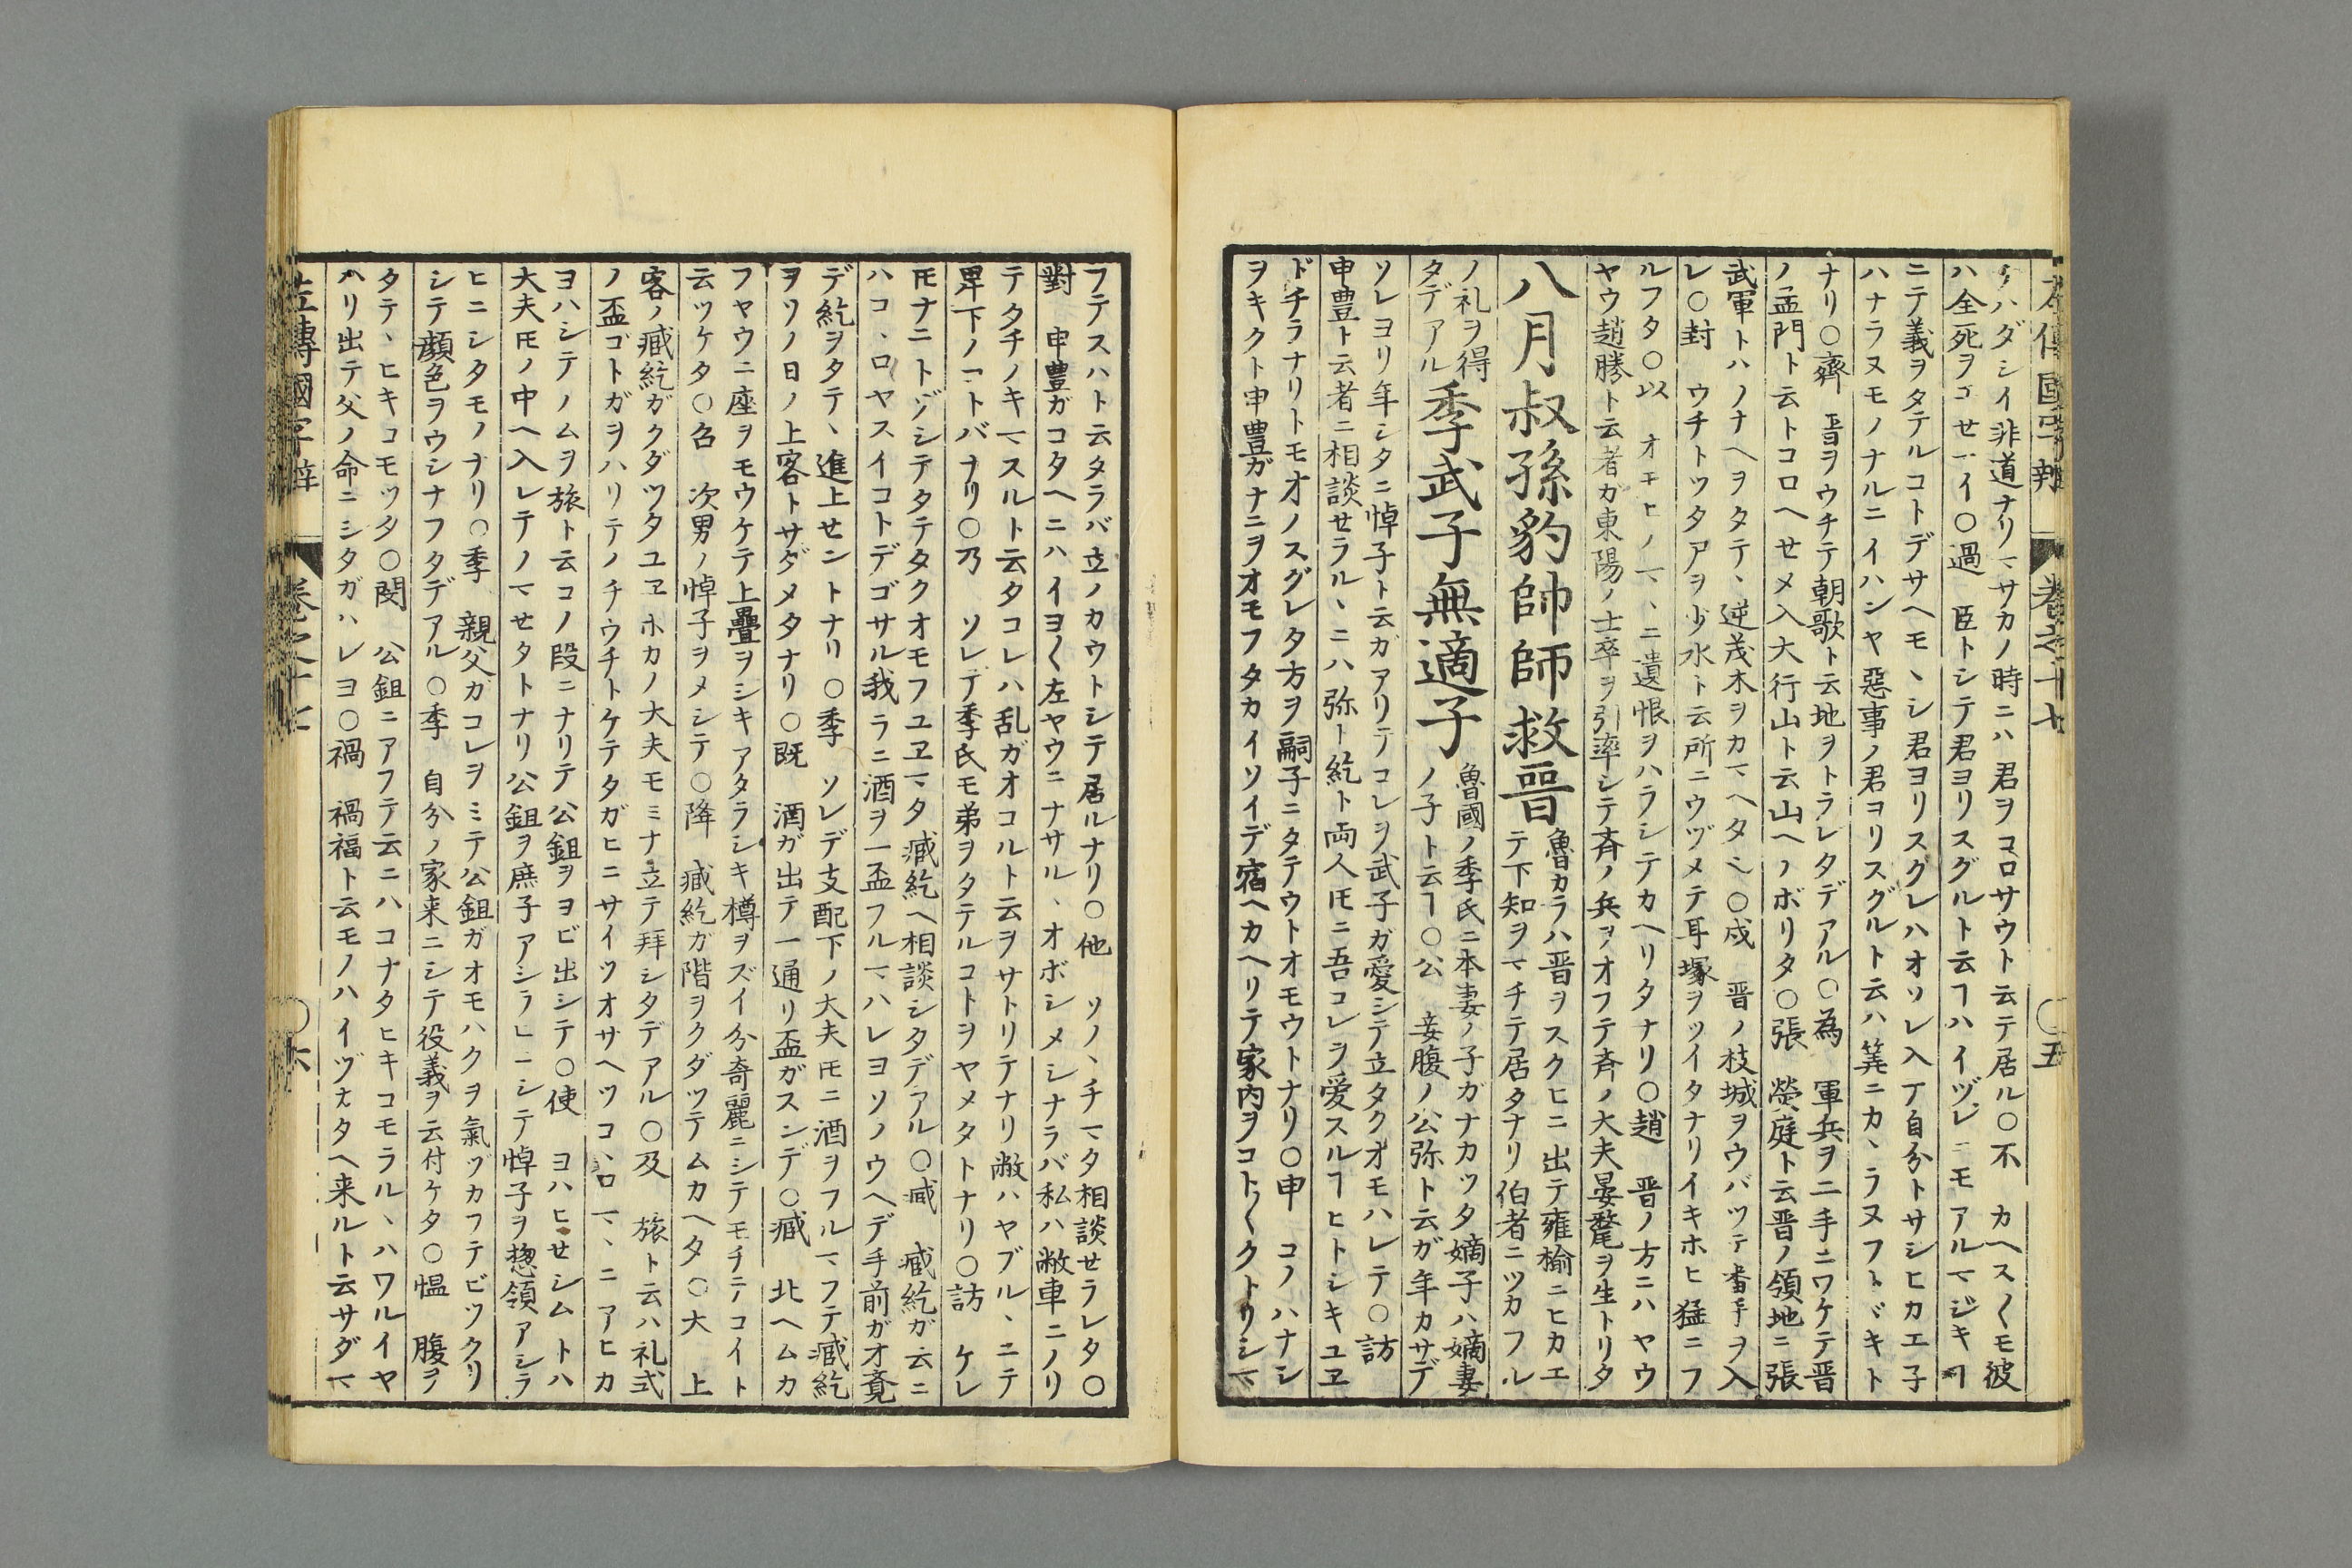 左傳國字辯 卷之十七 〇五
ダハダシイ非道ナリマサカノ時ニハ君ヲコロサウト云テ居ル〇不 カヘス〱モ彼
ハ全死ヲゴせーイ〇過 臣トシテ君ヨリスグルト云ヿハイヅレニモアルマジキヿ
ニテ義ヲタテルコトデサヘモヽシ君ヨリスグレハオソレ入テ自分トサシヒカエ子
ハナラヌモノナルニイハンヤ惡事ノ君ヨリスグルト云ハ筭ニカヽラヌフトヾキト
ナリ〇齊 晋ヲウチテ朝歌ト云地ヲトラレタデアル〇為 軍兵ヲ二手ニワケテ晋
ノ孟門ト云トコロヘせメ入大行山ト云山ヘノボリタ〇張 熒庭ト云晋ノ領地ニ張
武軍トハノナヘヲタテヽ逆茂木ヲカマヘタ〇戍 晋ノ枝城ヲウバツテ番手ヲ入
レ〇封 ウチトツタアヲ少水ト云所ニウヅメテ耳塚ヲツイタナリイキホヒ猛ニフ
ルフタ〇以 オモヒノマヽニ遺恨ヲハラシテカヘリタナリ〇趙 晋ノ方ニハヤウ
ヤウ趙勝ト云者ガ東陽ノ士卒ヲ引率シテ斉ノ兵ヲオフテ斉ノ大夫晏氂ヲ生トリタ
八月叔孫豹帥師救晉 魯カラハ晋ヲスクヒニ出テ雍楡ニヒカエ
テ下知ヲマチテ居タナリ伯者ニツカフル
ノ礼ヲ得
タデアル 季武子無適子 魯國ノ季氏ニ本妻ノ子ガナカツタ嫡子ハ嫡妻
ノ子ト云ヿ〇公 妾腹ノ公弥ト云ガ年カサデ
ソレヨリ年シタニ悼子ト云ガアリテコレヲ武子ガ愛シテ立タクオモハレテ〇訪
申豊ト云者ニ相談せラルヽニハ弥ト紇ト両人𪜈ニ吾コレヲ愛スルヿヒトシキユヱ
ドチラナリトモオノスグレタ方ヲ嗣子ニタテウトオモウトナリ〇申 コノハナシ
ヲキクト申豊ガナニヲオモフタカイソイデ宿ヘカヘリテ家内ヲコト〱クトリシマ
フテスハト云タラバ立ノカウトシテ居ルナリ〇他 ソノヽチマタ相談せラレタ〇
對 申豊ガコタヘニハイヨ〱左ヤウニナサルヽオボシメシナラバ私ハ敝車ニノリ
テタチノキマスルト云タコレハ乱ガオコルト云ヲサトリテナリ敝ハヤブルヽニテ
卑下ノコトバナリ〇乃 ソレデ季氏モ弟ヲタテルコトヲヤメタトナリ〇訪 ケレ
𪜈ナニトゾシテタテタクオモフユヱマタ臧紇ヘ相談シタデアル〇臧 臧紇ガ云ニ
ハコヽロヤスイコトデゴサル我ラニ酒ヲ一盃フルマハレヨソノウヘデ手前ガオ竟
デ紇ヲタテヽ進上せントナリ〇季 ソレデ支配下ノ大夫𪜈ニ酒ヲフルマフテ臧紇
ヲソノ日ノ上客トサダメタナリ〇既 酒ガ出テ一通リ盃ガスンデ〇臧 北ヘムカ
フヤウニ座ヲモウケテ上疊ヲシキアタラシキ樽ヲズイ分奇麗ニシテモチニテコイト
云ツケタ〇召 次男ノ悼子ヲメシテ〇降 臧紇ガ階ヲクダツテムカヘタ〇大 上
客ノ臧紇ガクダツタユヱホカノ大夫モミナ立テ拜シタデアル〇及 旅ト云ハ礼式
ノ盃ゴトガヲハリテノチウチトケテタガヒニサイツオサヘツコヽロマヽニアヒカ
ヨハシテノムヲ旅ト云コノ段ニナリテ公鉏ヲヨビ出シテ〇使 ヨハヒせシムトハ
大夫𪜈ノ中ヘ入レテノマせタトナリ公鉏ヲ庶子アシラヒニシテ悼子ヲ惣領アシラ
ヒニシタモノナリ〇季 親父ガコレヲミテ公鉏ガオモハクヲ氣ヅカフテビツクリ
シテ顔色ヲウシナフタデアル〇季 自分ノ家来ニシテ役義ヲ云付ケタ〇慍 腹ヲ
タテヽヒキコモツタ〇閔 公鉏ニアフテ云ニハコナタヒキコモラルヽハワルイヤ
ハリ出テ父ノ命ニシタガハレヨ〇禍 禍福ト云モノハイヅカタヘ来ルト云サダマ
左傳國字辯 卷之十七 〇六